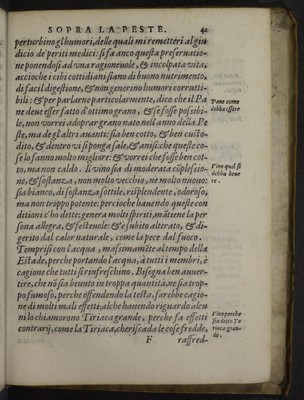 SOPRA LA PESTE. 41
perturbino gl'humori, delle quali mi remetterò al giu
dicio de' periti medici: si fa anco questa preseruatio-
ne ponendosi ad vna ragioneuole, & incolpata vita,
accioche i cibi cottidiani siano di buono nutrimento,
di facil digestione, & non generino humori corrutti-
bili: & per parlarne particolarmente, dico che il Pa
ne deue esser fatto d'ottimo grano, & se fosse possibi-
le, non vorrei adoprar grano nato nell'anno della Pe
ste, ma de gl'altri auanti: sia ben cotto, & ben custo-
dito, & dentro vi si ponga sale, & anisi: che queste co-
se lo fanno molto migliore: & vorrei che fosse ben cot-
to, ma non caldo. Il vino sia di moderata cōplessio-
ne, & sostanza, non molto vecchio, nè molto nuouo:
sia bianco, di sostanza sottile, risplendente, odoroso,
ma non troppo potente: percioche hauendo queste con
ditioni c'ho dette; genera molti spiriti, mātiene la per
sona allegra, & festeuole: & è subito alterato, & di-
gerito dal calor naturale, come la pece dal fuoco.
Temprisi con l'acqua, massimamēte al tempo della
Estade, perche portando l'acqua, à tutti i membri, è
cagione che tutti si rinfreschino. Bisogna ben auuer-
tire, che nō sia beuuto in troppa quantità, ne sia trop-
po fumoso, perche offendendo la testa, sarebbe cagio-
ne di molti mali effetti, al che hauendo riguardo alcu
ni lo chiamorono Tiriaca grande, perche fa effetti
contrarij, come la Tiriaca, che riscalda le cose fredde,
F raffred-
Pane come
debba essere
Vino qual si
debba beue
re.
Vino perche
sia detto Ti
riaca gran-
de.